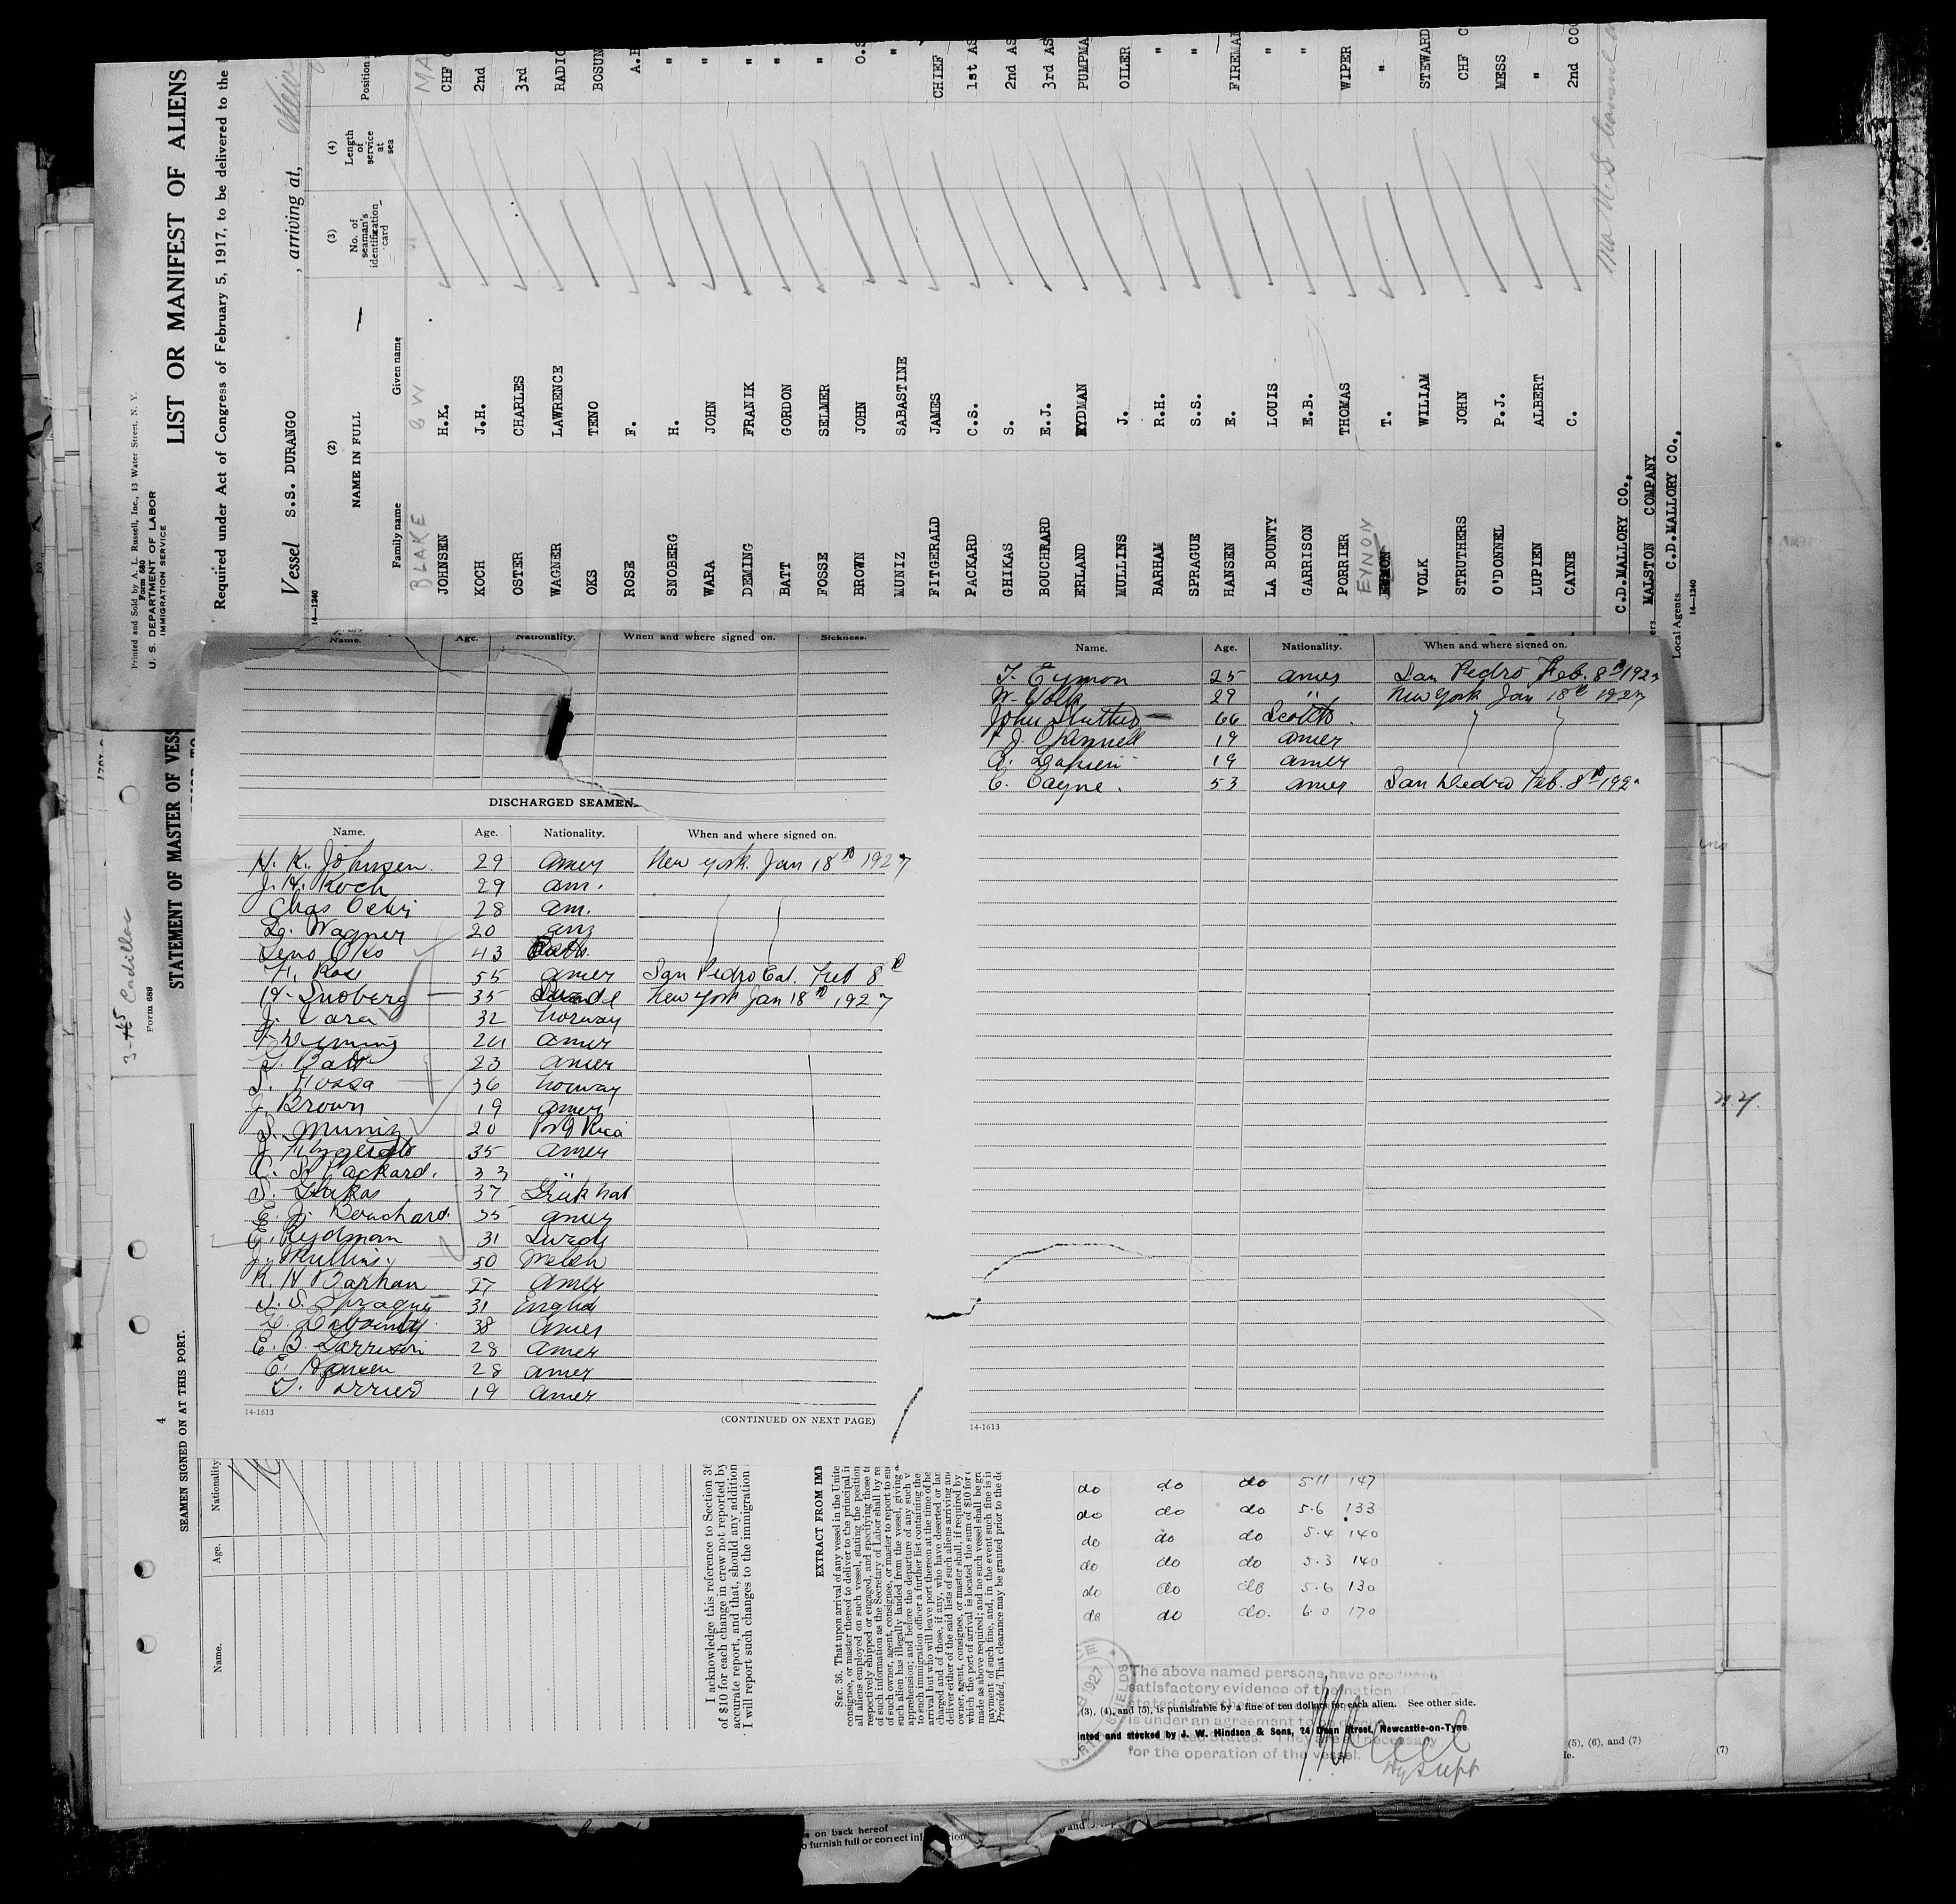 Printed and Sold by A. L. Russell, Inc., 13 Water Street, N. Y.
Form 680
U. S. DEPARTMENT OF LABOR
IMMIGRATION SERVICE
LIST OR MANIFEST OF ALIENS
Required under Act of Congress of February 5, 1917, to be delivered to the
Vessel S.S. DURANGO , arriving at,
14—1240
(2) (3) (4)
NAME IN FULL No. of seaman's identification card Length of service at sea Position
Family name Given name
BLAKE G W MA
JOHNSEN H.K. CHF
KOCH J.H. 2nd
OSTER CHARLES 3rd
WAGNER LAWRENCE RADIO
OKS TENO BOSUN
ROSE F. A.B
SNOBERG H. "
WARA JOHN "
DEMING FRANIK "
BATT GORDON "
FOSSE SELMER "
BROWN JOHN O.S
MUNIZ SABASTINE "
FITGERALD JAMES CHIEF
PACKARD C.S. 1st AS
GHIKAS S. 2nd AS
BOUCHRARD E.J. 3rd AS
ERLAND RYDMAN PUMPMA
MULLINS J. OILER
BARHAM R.H. "
SPRAGUE S.S. "
HANSEN E. FIREMAN
LA BOUNTY LOUIS "
GARRISON E.B. "
PORRIER THOMAS WIPER
EYNON T. "
VOLK WILLIAM STEWARD
STRUTHERS JOHN CHF C
O'DONNEL P.J. MESS
LUPIEN ALBERT "
CAYNE C. 2nd CO
C.D.MALLORY CO.,
MALSTON COMPANY
Local Agents C.D.MALLORY CO.,
14—1240
Name. Age. Nationality. When and where signed on. Sickness.
DISCHARGED SEAMEN.
Name. Age. Nationality. When and where signed on.
H. K. Johnsen 29 Amer New York Jan 18th 1927
J. H. Koch 29 Am.
Chas 28 Am.
L. Wagner 20
Teno Oks 43
F. Rose 55 Amer San Pedro Cal. Feb 8th
H. Snoberg 35 New York Jan 18th 1927
J. Vara 32 Norway
F. Deming Amer
G. Batt 23 Amer
S. Fossa 36 Norway
J. Brown 19 Amer
S. Muniz 20 Rico
J. Fitzgerald 35 Amer
C. S. Packard. 33 "
S. Ghikas 37 Greek
E. J. Bouchard 35 Amer
E. Rydman 31 Swede
J. Mullins. 50 Welsh
R. H Barhan 27 Amer
S. S. Sprague 31 English
L. Labounty 38 Amer
E. B. Garrison 28 Amer
E. Hansen 28 Amer
T. Porrier 19 Amer
14-1613 (CONTINUED ON NEXT PAGE)
Name. Age. Nationality. When and where signed on.
T. Eymon 25 Amer San Pedro Feb. 8th 1927
W. Volk 29 " New York Jan 18th 1927
John Struthers 66 Scotch
P J. O'Donnell 19 Amer
A. Lupien 19 Amer
C. Cayne. 53 Amer San Pedro Feb. 8th 192
14-1613
3-165 Cadillac
Form 689
STATEMENT OF MASTER OF VESS
4
SEAMEN SIGNED ON AT THIS PORT.
Name. Age. Nationality
I acknowledge this reference to Section 36
of $10 for each change in crew not reported by
accurate report, and that, should any addition
I will report such changes to the immigration
EXTRACT FROM IMM
SEC. 36. That upon arrival of any vessel in the Unite
consignee, or master thereof to deliver to the principal i
all aliens employed on such vessel, stating the position
respectively shipped or engaged, and specifying those t
of such information as the Secretary of Labor shall by re
of such owner, agent, consignee, or master to report to su
such alien has illegally landed from the vessel, giving a
apprehension; and before the departure of any such v
to such immigration officer a further list containing the
arrival but who will leave port thereon at the time of he
charged and of those, if any, who have deserted or lan
deliver either of the said lists of such aliens arriving and
owner, agent, consignee, or master shall, if required by
which the port of arrival is located the sum of $10 for e
made as above required; and no such vessel shall be gr
payment of such fine, and, in the event such fine is in
Provided, That clearance may be granted prior to the de
do do do 5-11 147
do do do 5.6 133
do do do 5.4 140
do do do 5.3 140
do do do 5.6 130
do do do. 6.0 170
The above named persons have produced
satisfactory evidence of the nation
(3), (4), and (5), is punishable by a fine of ten dollars for each alien. See other side.
is under an agreement to
inted and stocked by J. W. Hindson & Sons, 24 Dean Street, Newcastle-on-Tyne
United States. They are all necessary
for the operation of the vessel.
1927
NORTH SHIELDS
N.Y.
(5), (6), and (7)
(7)
s on back hereof
o furnish full or correct information
and